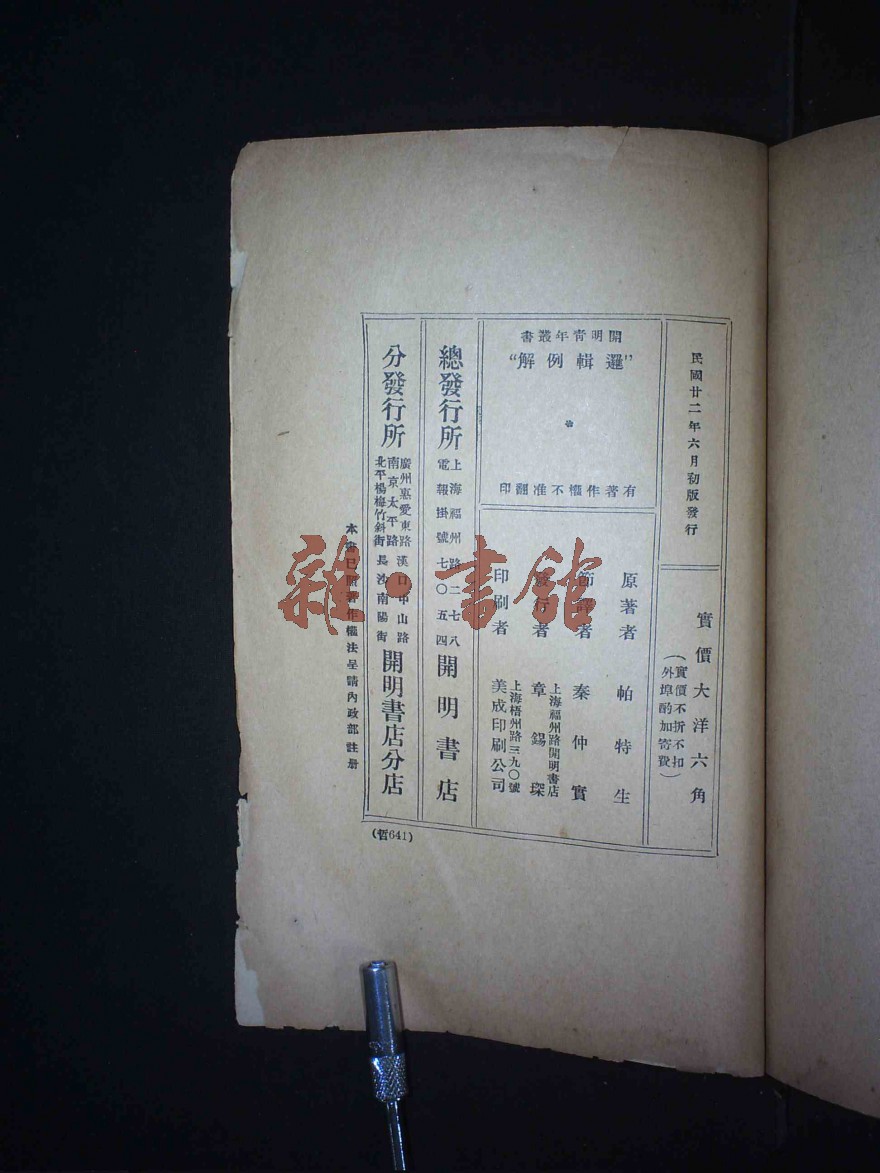 民國廿二年六月初版發行
實價大洋六角
(實價不折不扣
外埠酌加寄費)
開明青年叢書
"邏輯例解"
有著作權不准翻印
原著者 帕特生
節譯者 秦仲實
發行者 章錫琛
上海福州路開明書店
印刷者 美成印刷公司
上海梧州路三九〇號
總發行所 開明書店
上海福州路二七八
電報掛號七〇五四
分發行所 開明書店分店
廣州惠愛東路 漢口中山路
南京太平路
北平楊梅竹斜街 長沙南陽街
本書已照著作權法呈請內政部註册
(哲641)
雜·書館